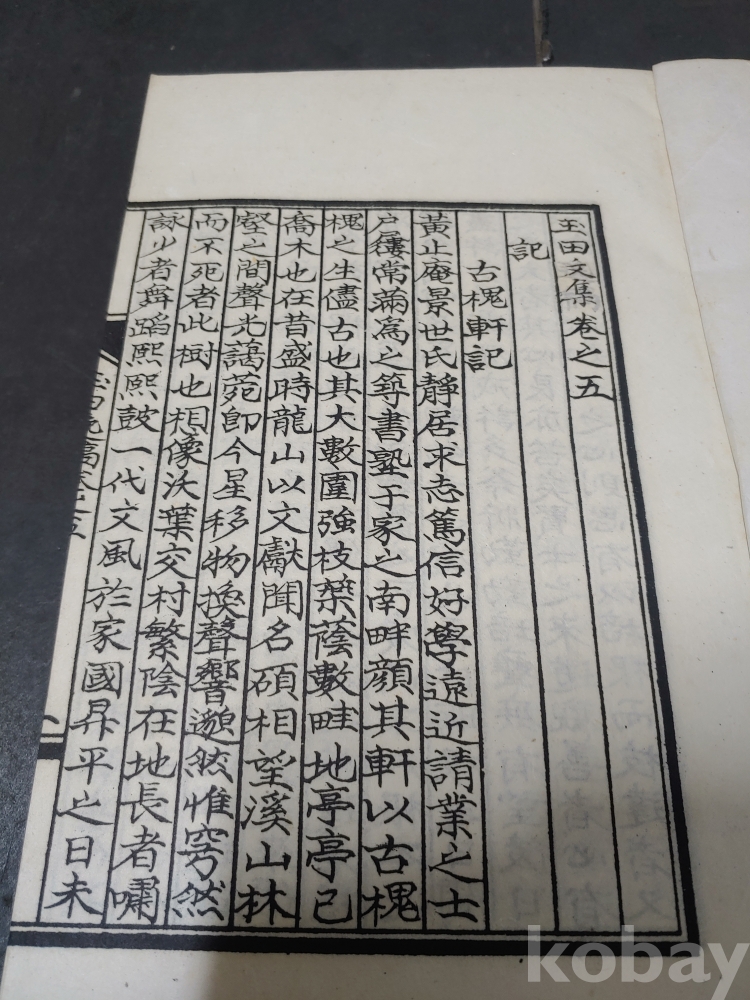 玉田文集卷之五
記
古槐軒記
黃止庵景世氏靜居求志篤信好學遠近請業之士
户屨常滿爲之等書塾于家之南畔顔其軒以古槐
槐之生儘古也其大數圍強枝葉蔭數畦地亭亭已
喬木也在昔盛時龍山以文獻聞名碩相望溪山林
壑之間聲光藹菀卽今星移物換聲響邈然惟穹然
而不死者此樹也相像沃葉交村繁陰在地長者嘯
詠少者舞蹈熙熙皷一代文風於家國昇平之日未
kobay